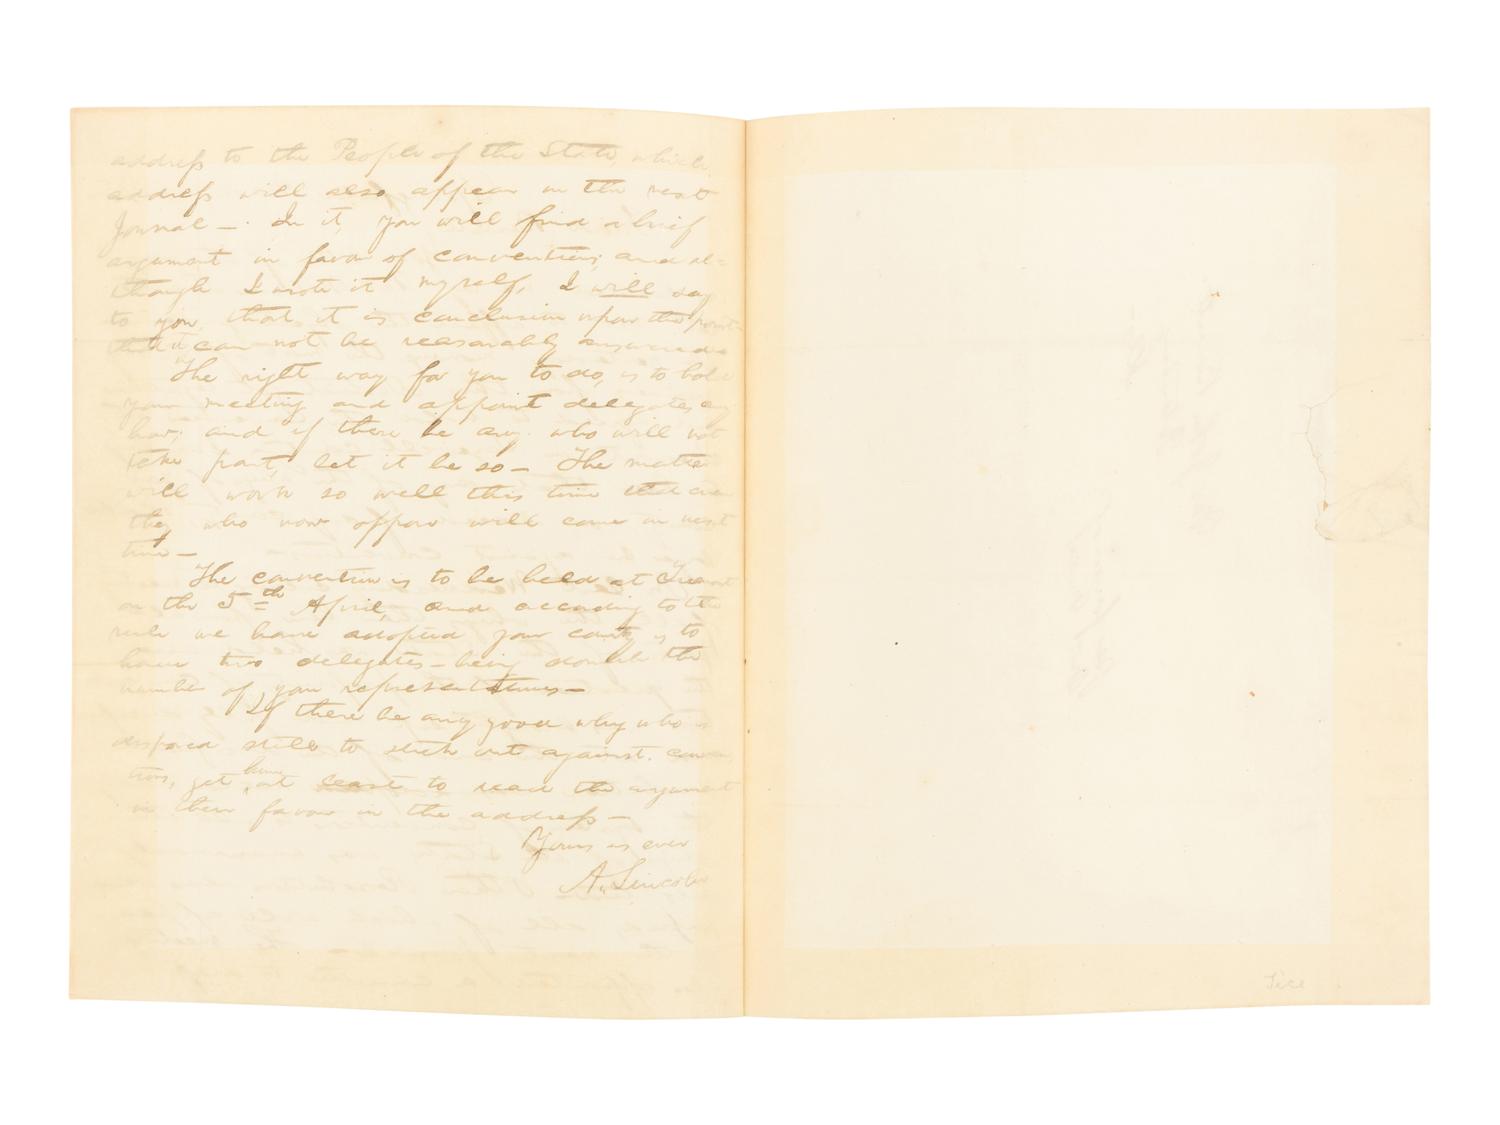 address to the People of the State, which
address will also appear in the next
Journal —. In it, you will find a brief
argument in favor of conventions; and al=
though I wrote it myself, I will say
to you, that it is conclusive upon the point
that it can not be reasonably answered.
The right way for you to do, is to hold
your meeting and appoint delegates any
how; and if there be any who will not
take part, let it be so — The matter
will work so well this time that even
they who now oppose will come in next
time —
The convention is to be held at Tremont
on the 5th April, and according to the
rule we have adopted your county is to
have two delegates — being double the
number of your representatives —
If there be any good whig who is
disposed still to stick out against conven
tions, get him, at least to read the argument
in their favor in the address —
Yours as ever
A. Lincoln
Tice